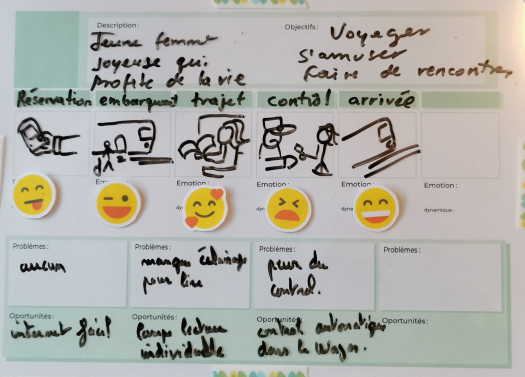 Description:
Jeune femme
joyeuse qui
profite de la vie
Objectifs:
Voyager
s'amuser
faire de rencontres
Réservation embarquement trajet control arrivée
Emotion:
Emotion:
Emotion:
Emotion:
dynamique:
Problèmes:
aucun
Problèmes:
manque éclairage
pour lire
Problèmes:
peur du
control.
Problèmes:
Oportunités:
internet facil
Oportunités:
lampe lecture
individuelle
Oportunités:
control automatique
dans le wagon.
Oportunités: